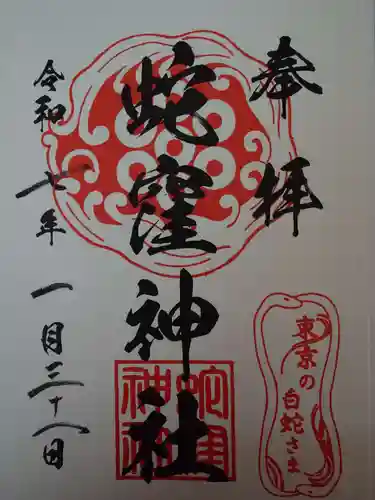 奉拝
蛇窪神社
令和七年
一月三十一日
東京の
白蛇さま